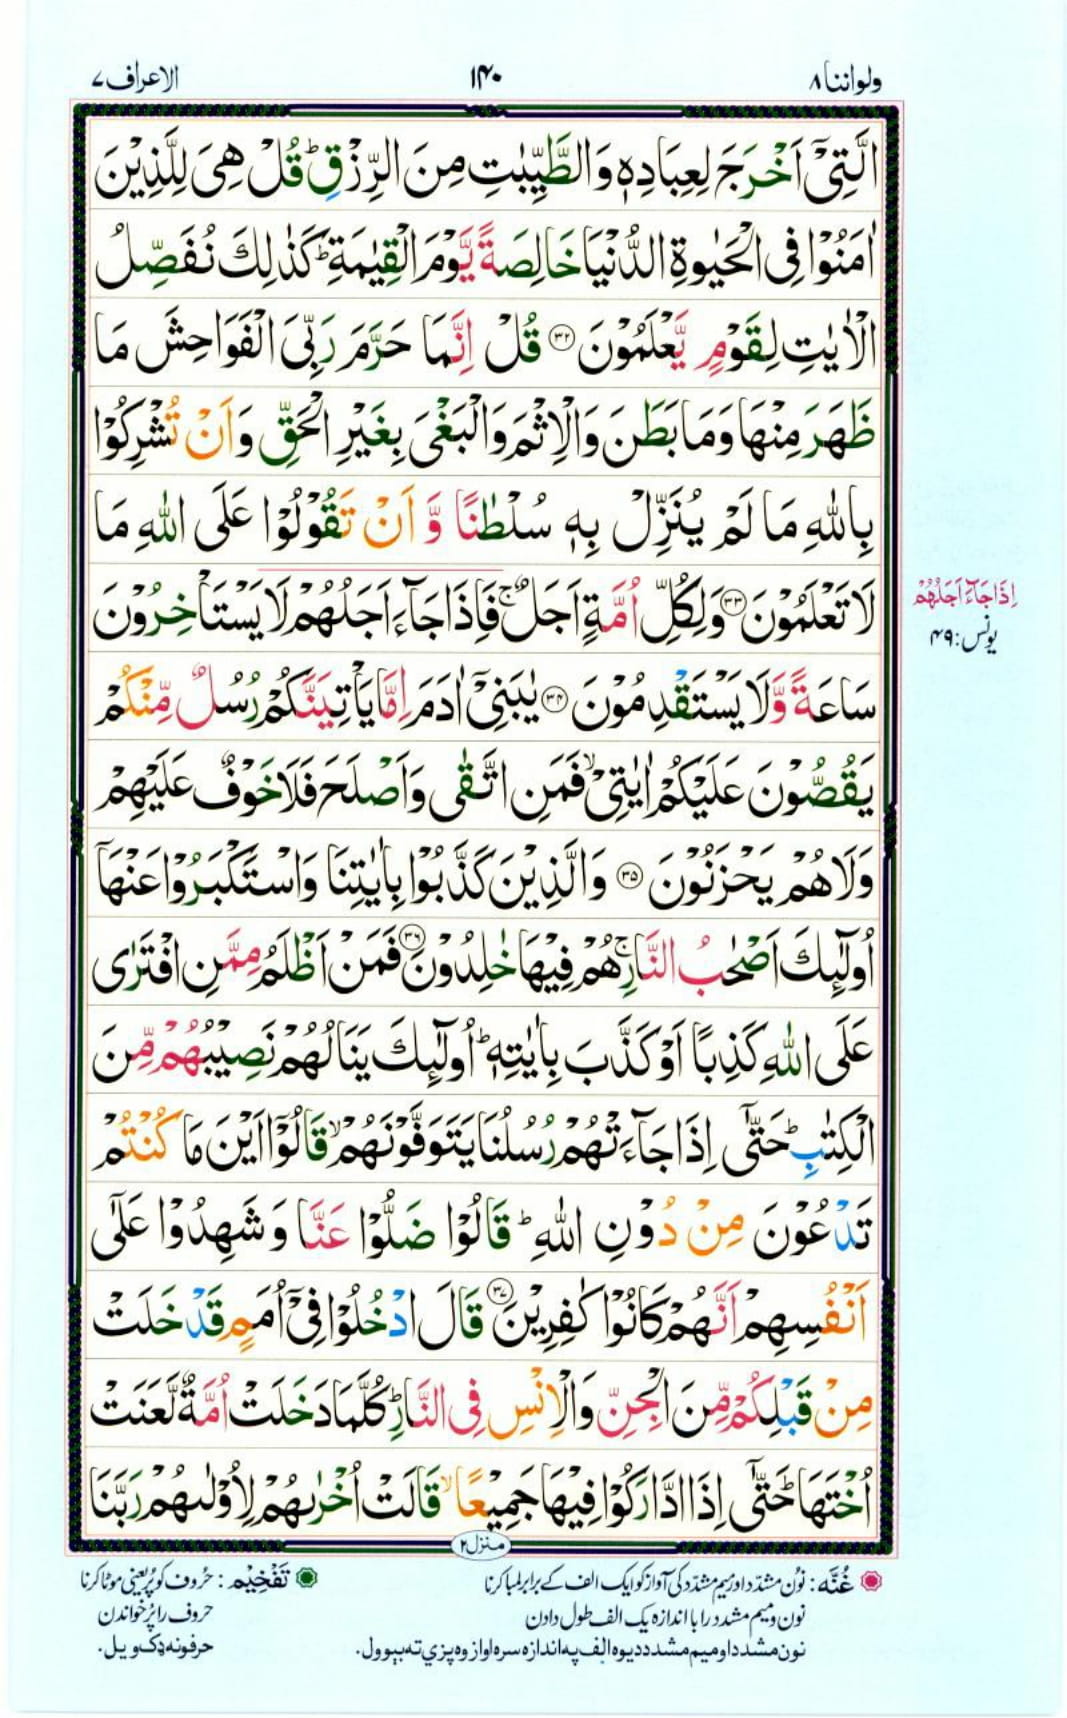 ولواننا ۸
۱۴۰
الاعراف ۷
الَّتِیْۤ اَخْرَجَ لِعِبَادِهٖ وَالطَّیِّبٰتِ مِنَ الرِّزْقِ ؕ قُلْ هِیَ لِلَّذِیْنَ
اٰمَنُوْا فِی الْحَیٰوةِ الدُّنْیَا خَالِصَةً یَّوْمَ الْقِیٰمَةِ ؕ كَذٰلِكَ نُفَصِّلُ
الْاٰیٰتِ لِقَوْمٍ یَّعْلَمُوْنَ ۳۲ قُلْ اِنَّمَا حَرَّمَ رَبِّیَ الْفَوَاحِشَ مَا
ظَهَرَ مِنْهَا وَمَا بَطَنَ وَالْاِثْمَ وَالْبَغْیَ بِغَیْرِ الْحَقِّ وَاَنْ تُشْرِكُوْا
بِاللّٰهِ مَا لَمْ یُنَزِّلْ بِهٖ سُلْطٰنًا وَّاَنْ تَقُوْلُوْا عَلَی اللّٰهِ مَا
لَا تَعْلَمُوْنَ ۳۳ وَلِكُلِّ اُمَّةٍ اَجَلٌ ۚ فَاِذَا جَآءَ اَجَلُهُمْ لَا یَسْتَاْخِرُوْنَ
سَاعَةً وَّلَا یَسْتَقْدِمُوْنَ ۳۴ یٰبَنِیْۤ اٰدَمَ اِمَّا یَاْتِیَنَّكُمْ رُسُلٌ مِّنْكُمْ
یَقُصُّوْنَ عَلَیْكُمْ اٰیٰتِیْ ۙ فَمَنِ اتَّقٰی وَاَصْلَحَ فَلَا خَوْفٌ عَلَیْهِمْ
وَلَا هُمْ یَحْزَنُوْنَ ۳۵ وَالَّذِیْنَ كَذَّبُوْا بِاٰیٰتِنَا وَاسْتَكْبَرُوْا عَنْهَاۤ
اُولٰٓئِكَ اَصْحٰبُ النَّارِ ۚ هُمْ فِیْهَا خٰلِدُوْنَ ۳۶ فَمَنْ اَظْلَمُ مِمَّنِ افْتَرٰی
عَلَی اللّٰهِ كَذِبًا اَوْ كَذَّبَ بِاٰیٰتِهٖ ؕ اُولٰٓئِكَ یَنَالُهُمْ نَصِیْبُهُمْ مِّنَ
الْكِتٰبِ ؕ حَتّٰۤی اِذَا جَآءَتْهُمْ رُسُلُنَا یَتَوَفَّوْنَهُمْ ۙ قَالُوْۤا اَیْنَ مَا كُنْتُمْ
تَدْعُوْنَ مِنْ دُوْنِ اللّٰهِ ؕ قَالُوْا ضَلُّوْا عَنَّا وَشَهِدُوْا عَلٰۤی
اَنْفُسِهِمْ اَنَّهُمْ كَانُوْا كٰفِرِیْنَ ۳۷ قَالَ ادْخُلُوْا فِیْۤ اُمَمٍ قَدْ خَلَتْ
مِنْ قَبْلِكُمْ مِّنَ الْجِنِّ وَالْاِنْسِ فِی النَّارِ ؕ كُلَّمَا دَخَلَتْ اُمَّةٌ لَّعَنَتْ
اُخْتَهَا ؕ حَتّٰۤی اِذَا ادَّارَكُوْا فِیْهَا جَمِیْعًا ۙ قَالَتْ اُخْرٰىهُمْ لِاُوْلٰىهُمْ رَبَّنَا
اِذَا جَآءَ اَجَلُهُمْ
یونس: ۴۹
منزل ۲
غُنَّه: نون مشدّد اور میم مشدّد کی آواز کو ایک الف کے برابر لمبا کرنا
نون و میم مشدد را با اندازه یک الف طول دادن
نون مشدد او میم مشدد دیوه الف په اندازه سره اواز وه پزې ته بېوول.
تَفْخِیْم: حُروف کو پُر یعنی موٹا کرنا
حروف را پُر خواندن
حرفونه ډک ویل.